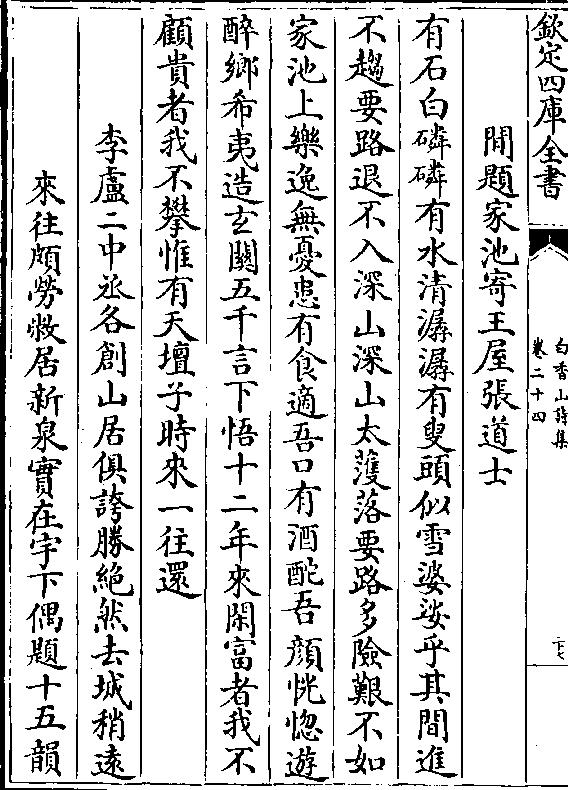 欽定四庫全書
白香山詩集
卷二十四
閒題家池寄王屋張道士
有石白磷磷有水清潺潺有叟頭似雪婆娑乎其間進
不趨要路退不入深山深山太濩落要路多險艱不如
家池上樂逸無憂患有食適吾口有酒酡吾顔恍惚遊
醉鄉希夷造玄關五千言下悟十二年來閑富者我不
顧貴者我不攀惟有天壇子時來一往還
李盧二中丞各創山居俱誇勝絶然去城稍遠
來往頗勞敝居新泉實在宇下偶題十五韻